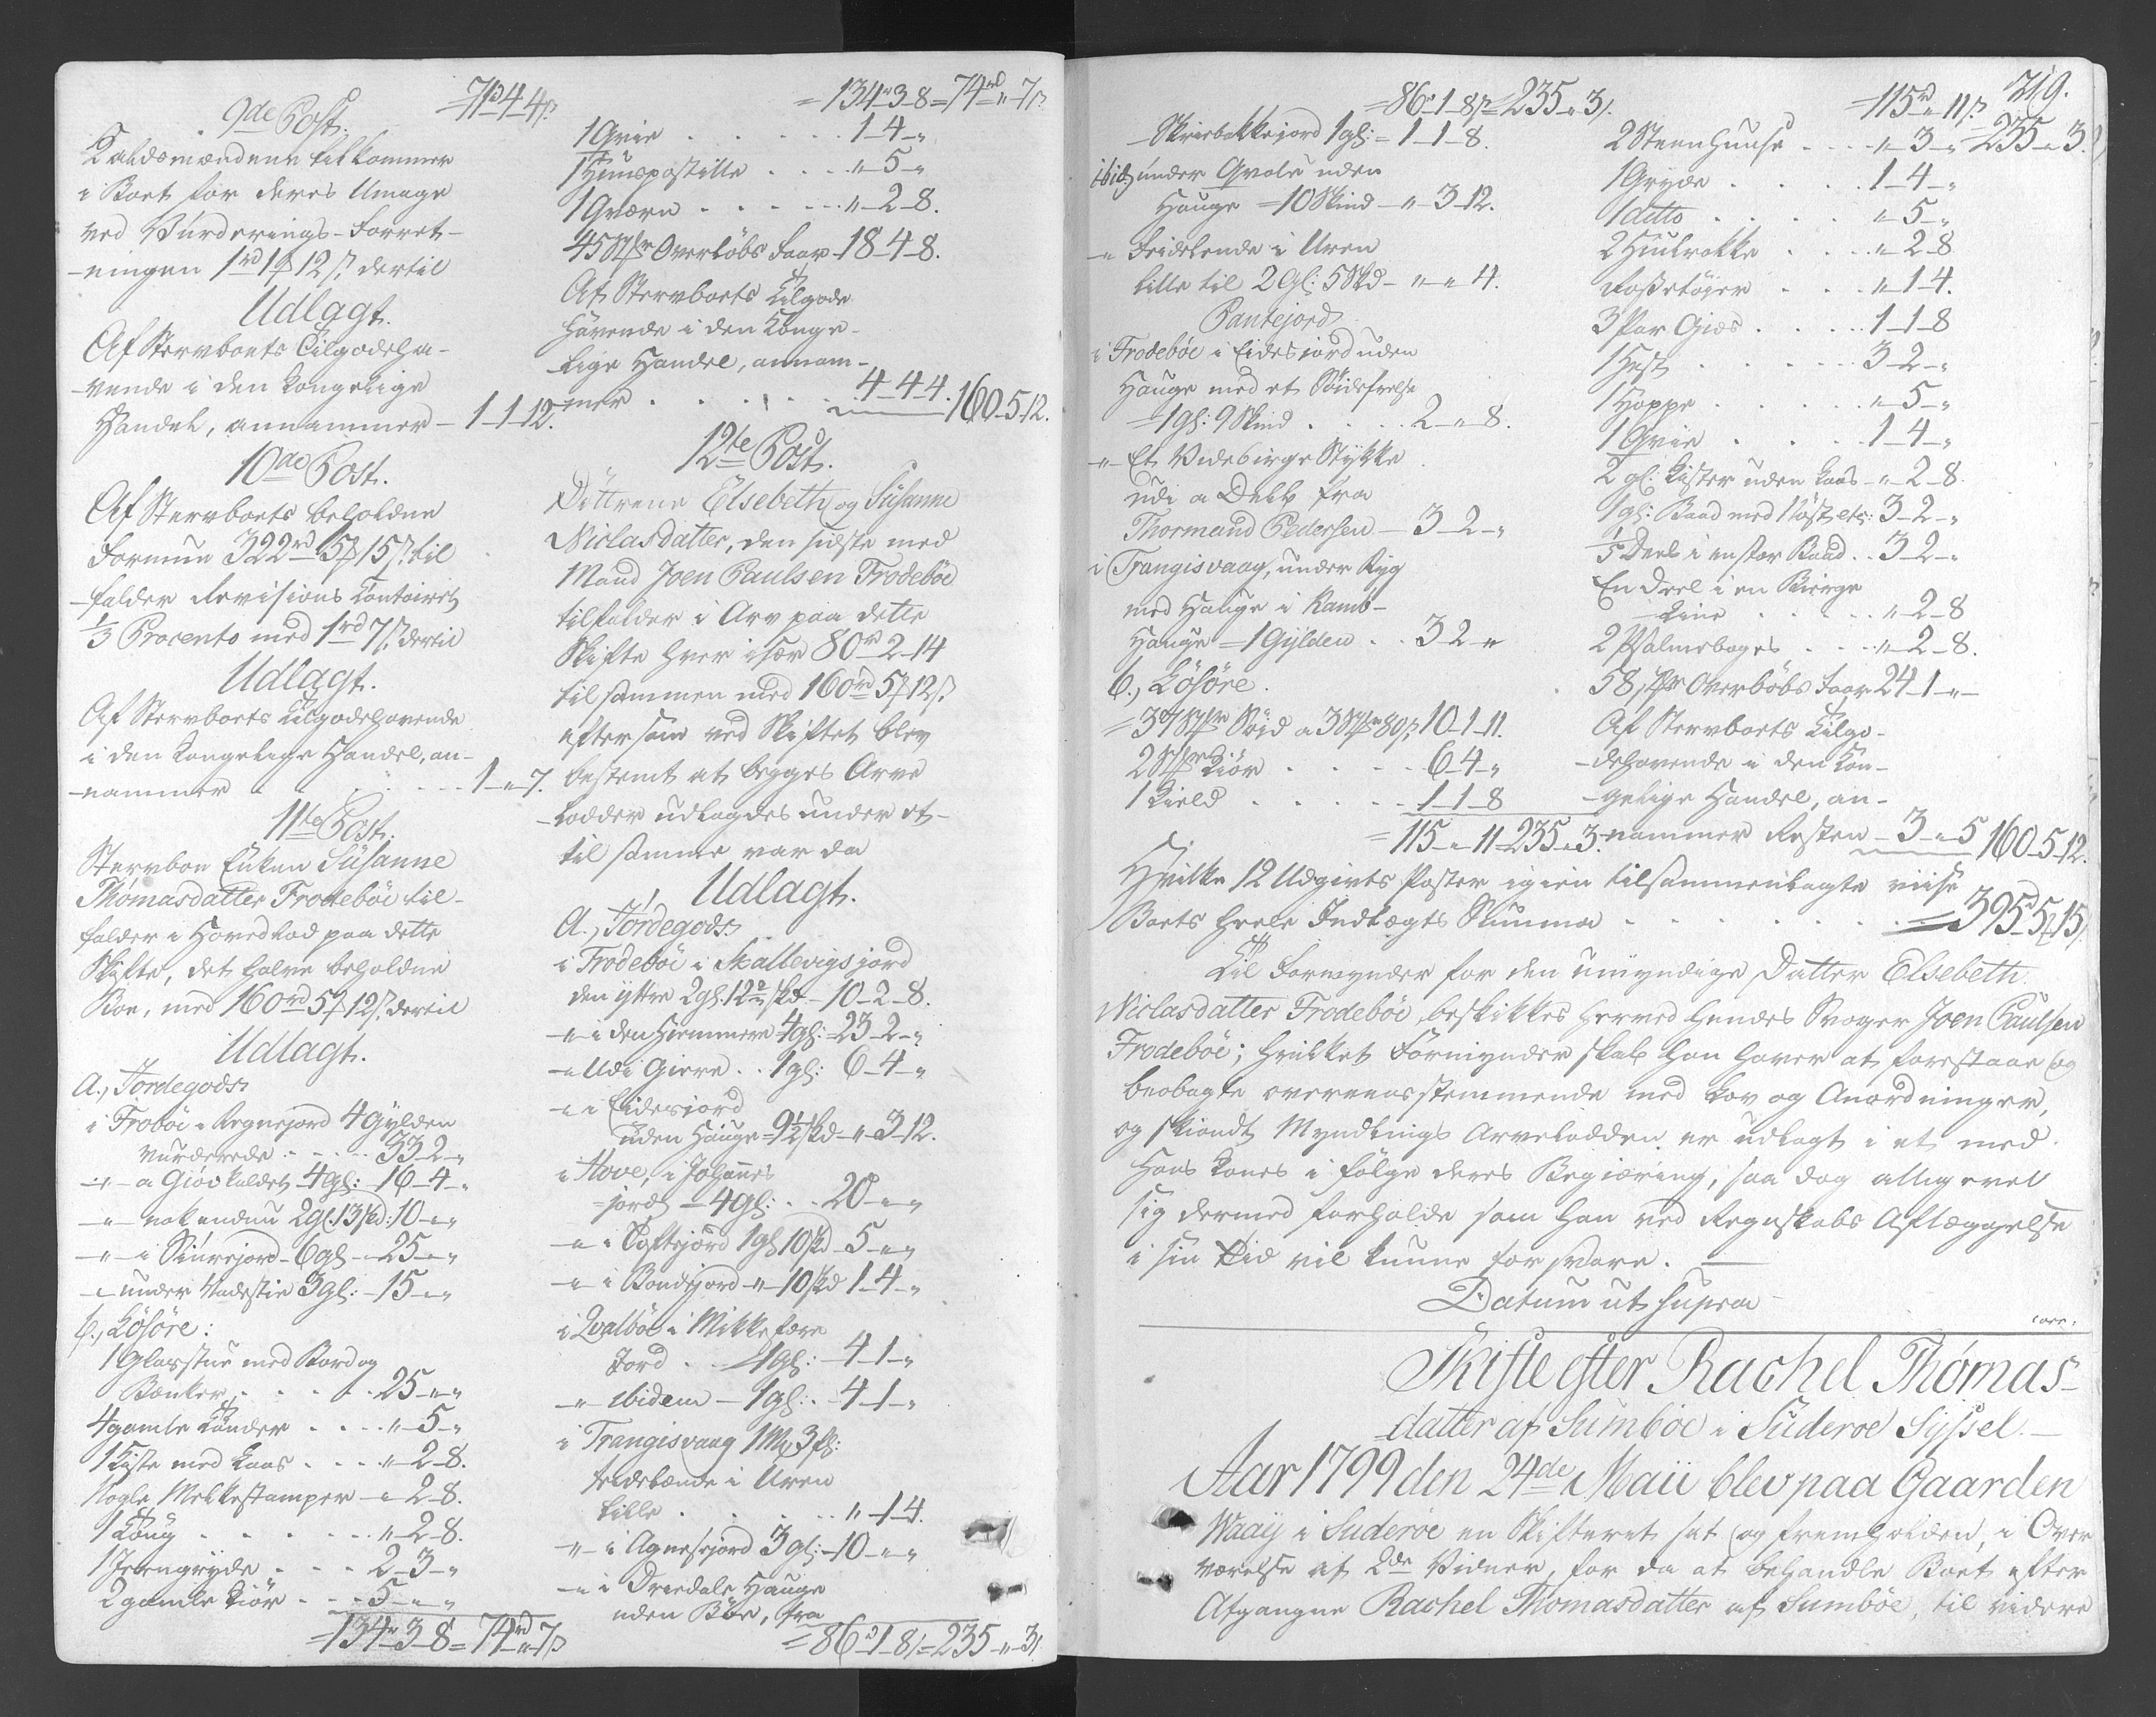 71rd 4 4ß.
9de Post.
Kaldsmændene tilkommer
i Boet for deres Umage
ved Vurderings-Forret-
-ningen 1rd 1# 12ß. dertil
Udlagt.
Af Stervboets Tilgodeha-
-vende i den Kongelige
Handel, annammer - 1-1-12.
10de Post.
Af Stervboets beholdne
Formue 322rd 5# 15ß. til
-falder Revisions Contoiret
1/3 Procento med 1rd 7ß. dertil
Udlagt.
Af Stervboets Tilgodehavende
i den Kongelige Handel, an-
-nammer . . . . 1-"-7.
11te Post.
Stervboe Enken Susanne
Thomasdatter Frodebøe til-
falder i Hovedlod paa dette
Skifte, det halve beholdne
Boe, med 160rd 5# 12ß. dertil
Udlagt.
A., Jordegods
i Frobøe i Regnejord 4 Gylden
vurderede . . . . 33-2-"
-"- a Giøvkuldet 4 gl: 16-4-"
-"- nok endnu 2 gl. 13 skd: 10-"-"
-"- i Siurejord - 6 gl - 25-"-"
-"- under Nadestie 3 gl: - 15-"-"
b., Løsøre:
1 Glasstue med Bord og
Bænker, . . . . 25-"-"
4 gamle Tønder . . . "-5-"
1 Kiste med Laas . . . "-2-8.
Nogle Melkestamper - " 2-8.
1 Toug . . . . . "-2-8.
1 Jerngryde . . . 2-3-"
2 gamle Kiør . . . 5-"-"
= 134-3-8 = 74rd-"-7ß
= 134-3-8 = 74rd-"-7ß.
1 Qvie . . . . . 1-4-"
1 Huuspostille . . . . "-5-"
1 Qværn . . . . . "-2-8.
45 Stkr Overløbs Faar 18-4-8.
Af Stervboets Tilgode
havende i den Konge-
-lige Handel, annam-
-mer . . . . . 4-4-4. 160-5-12.
12te Post.
Døttrene Elsebeth og Susanne
Niclasdatter, den sidste med
Mand Joen Paulsen Frodebøe
tilfalder i Arv paa dette
Skifte hver især 80rd-2-14
tilsammen med 160rd 5# 12ß.
eftersom ved Skiftet blev
bestemt at begges Arve
-lodder udlagdes under et-
til samme var da
Udlagt.
A., Jordegods.
i Frodebøe i Skallevigs jord
den yttre 2 gl. 12 skd. - 10-2-8.
-"- i den Hiemmere 4 gl: - 23-2-"
-"- Udi Giere . . 1 gl: 6-4-"
-"- i Eidesjord
uden Hauge - 9 1/2 skd - " - 3-12.
i Hove, i Johannes
-jord - 4 gl: . . 20-"-"
-"- i Toftejord 1 gl 10 skd - 5-"-"
-"- i Bondejord - " - 10 skd 1-4-"
i Qvalbøe i Mikkefære
Jord . . . 1 gl: - 4-1-"
-"- ibidem - 1 gl: . 4-1-"
i Trangisvaag 1 Mk 3 gl:
Feidelænde i Uren
lille . . . . . "-1-4.
-"- i Agnesejord 3 gl: - 10-"-"
-"- i Dreedale Hauge
uden Bøe, fra
= 86rd-1-8ß = 235-"-3ß
219.
= 86rd-1-8ß = 235-"-3ß.
Skreebakkejord 1 gl: = 1-1-8.
ibid: under Qvole uden
Hauge = 10 Skind - " - 3-12.
-"- Feidelende i Uren
lille til 2 gl: 5 Skd - " - " 4.
Pantejord
i Frodebøe i Eidesjord uden
Hauge med et Søidefrelse
= 1 gl: 9 Skind . . . 2-"-8.
-"- Et Videbirge Stykke
udi a Delv fra
Thormand Pedersen - 3-2-"
i Trangisvaag, under Ryg
med Hauge i Kamb-
Hauge = 1 Gylden . . 3-2-"
b., Løsøre.
= 37 Stkr Søid a 3 Stkr 80ß. 10-1-11.
2 Stkr Kiør . . . . 6-4-"
1 Kield . . . . . 1-1-8
= 115-"-11 = 235-"-3.
= 115rd-"-11ß. = 235-"-3.
2 Steenhuuse . . . . "-3-"
1 Gryde . . . . . 1-4-"
1 ditto . . . . . "-5-"
2 Hiulrokke . . . . "-2-8
Rossetøyer . . . "-1-4.
3 Par Giæs . . . . 1-1-8
1 Hest . . . . . 3-2-"
1 Hoppe . . . . . "-5-"
1 Qvie . . . . . 1-4-"
2 gl: Kister uden Laas - " - 2-8.
1 gl: Baad med Nøst etc: 3-2-"
1/5 Deel i en stor Baad . . 3-2-"
En Deel i en Bierge
-Line . . . . . "-2-8
2 Psalmebøger . . . "-2-8.
58 Stkr Overløbs Faar 24-1-"-
Af Stervboets Tilgo-
-dehavende i den Kon-
-gelige Handel, an-
-nammer Resten - 3-"-5 160-5-12.
Hvilke 12 Udgivts Poster igien tilsammenlagte viise
Boets heele Indtægts Summa . . . . . . = 395rd 5# 15ß.
Til Formynder for den umyndige Datter Elsebeth
Niclasdatter Frodebøe, beskikkes herved hendes Svoger Joen Paulsen
Frodebøe; hvilket Formynderskab han haver at forestaae og
beobagte overeensstemmende med Lov og Anordninger,
og skiøndt Myndlings Arvelodden er udlagt i et med
Hans Kones i følge deres Begiæring, saa dog alligevel
sig dermed forholde som han ved Regnskabs Aflæggelse
i sin Tid vil kunne forsvare. -
Datum ut supra
Skifte efter Rachel Thomas-
-datter af Sumbøe i Suderoe Syssel. -
Aar 1799 den 24de Maii blev paa Gaarden
Waaij i Suderoe en Skifteret sat og fremholden, i Over
værelse af 2de Vidner, for da at behandle Boet efter
Afgangne Rachel Thomasdatter af Sumbøe, til videre